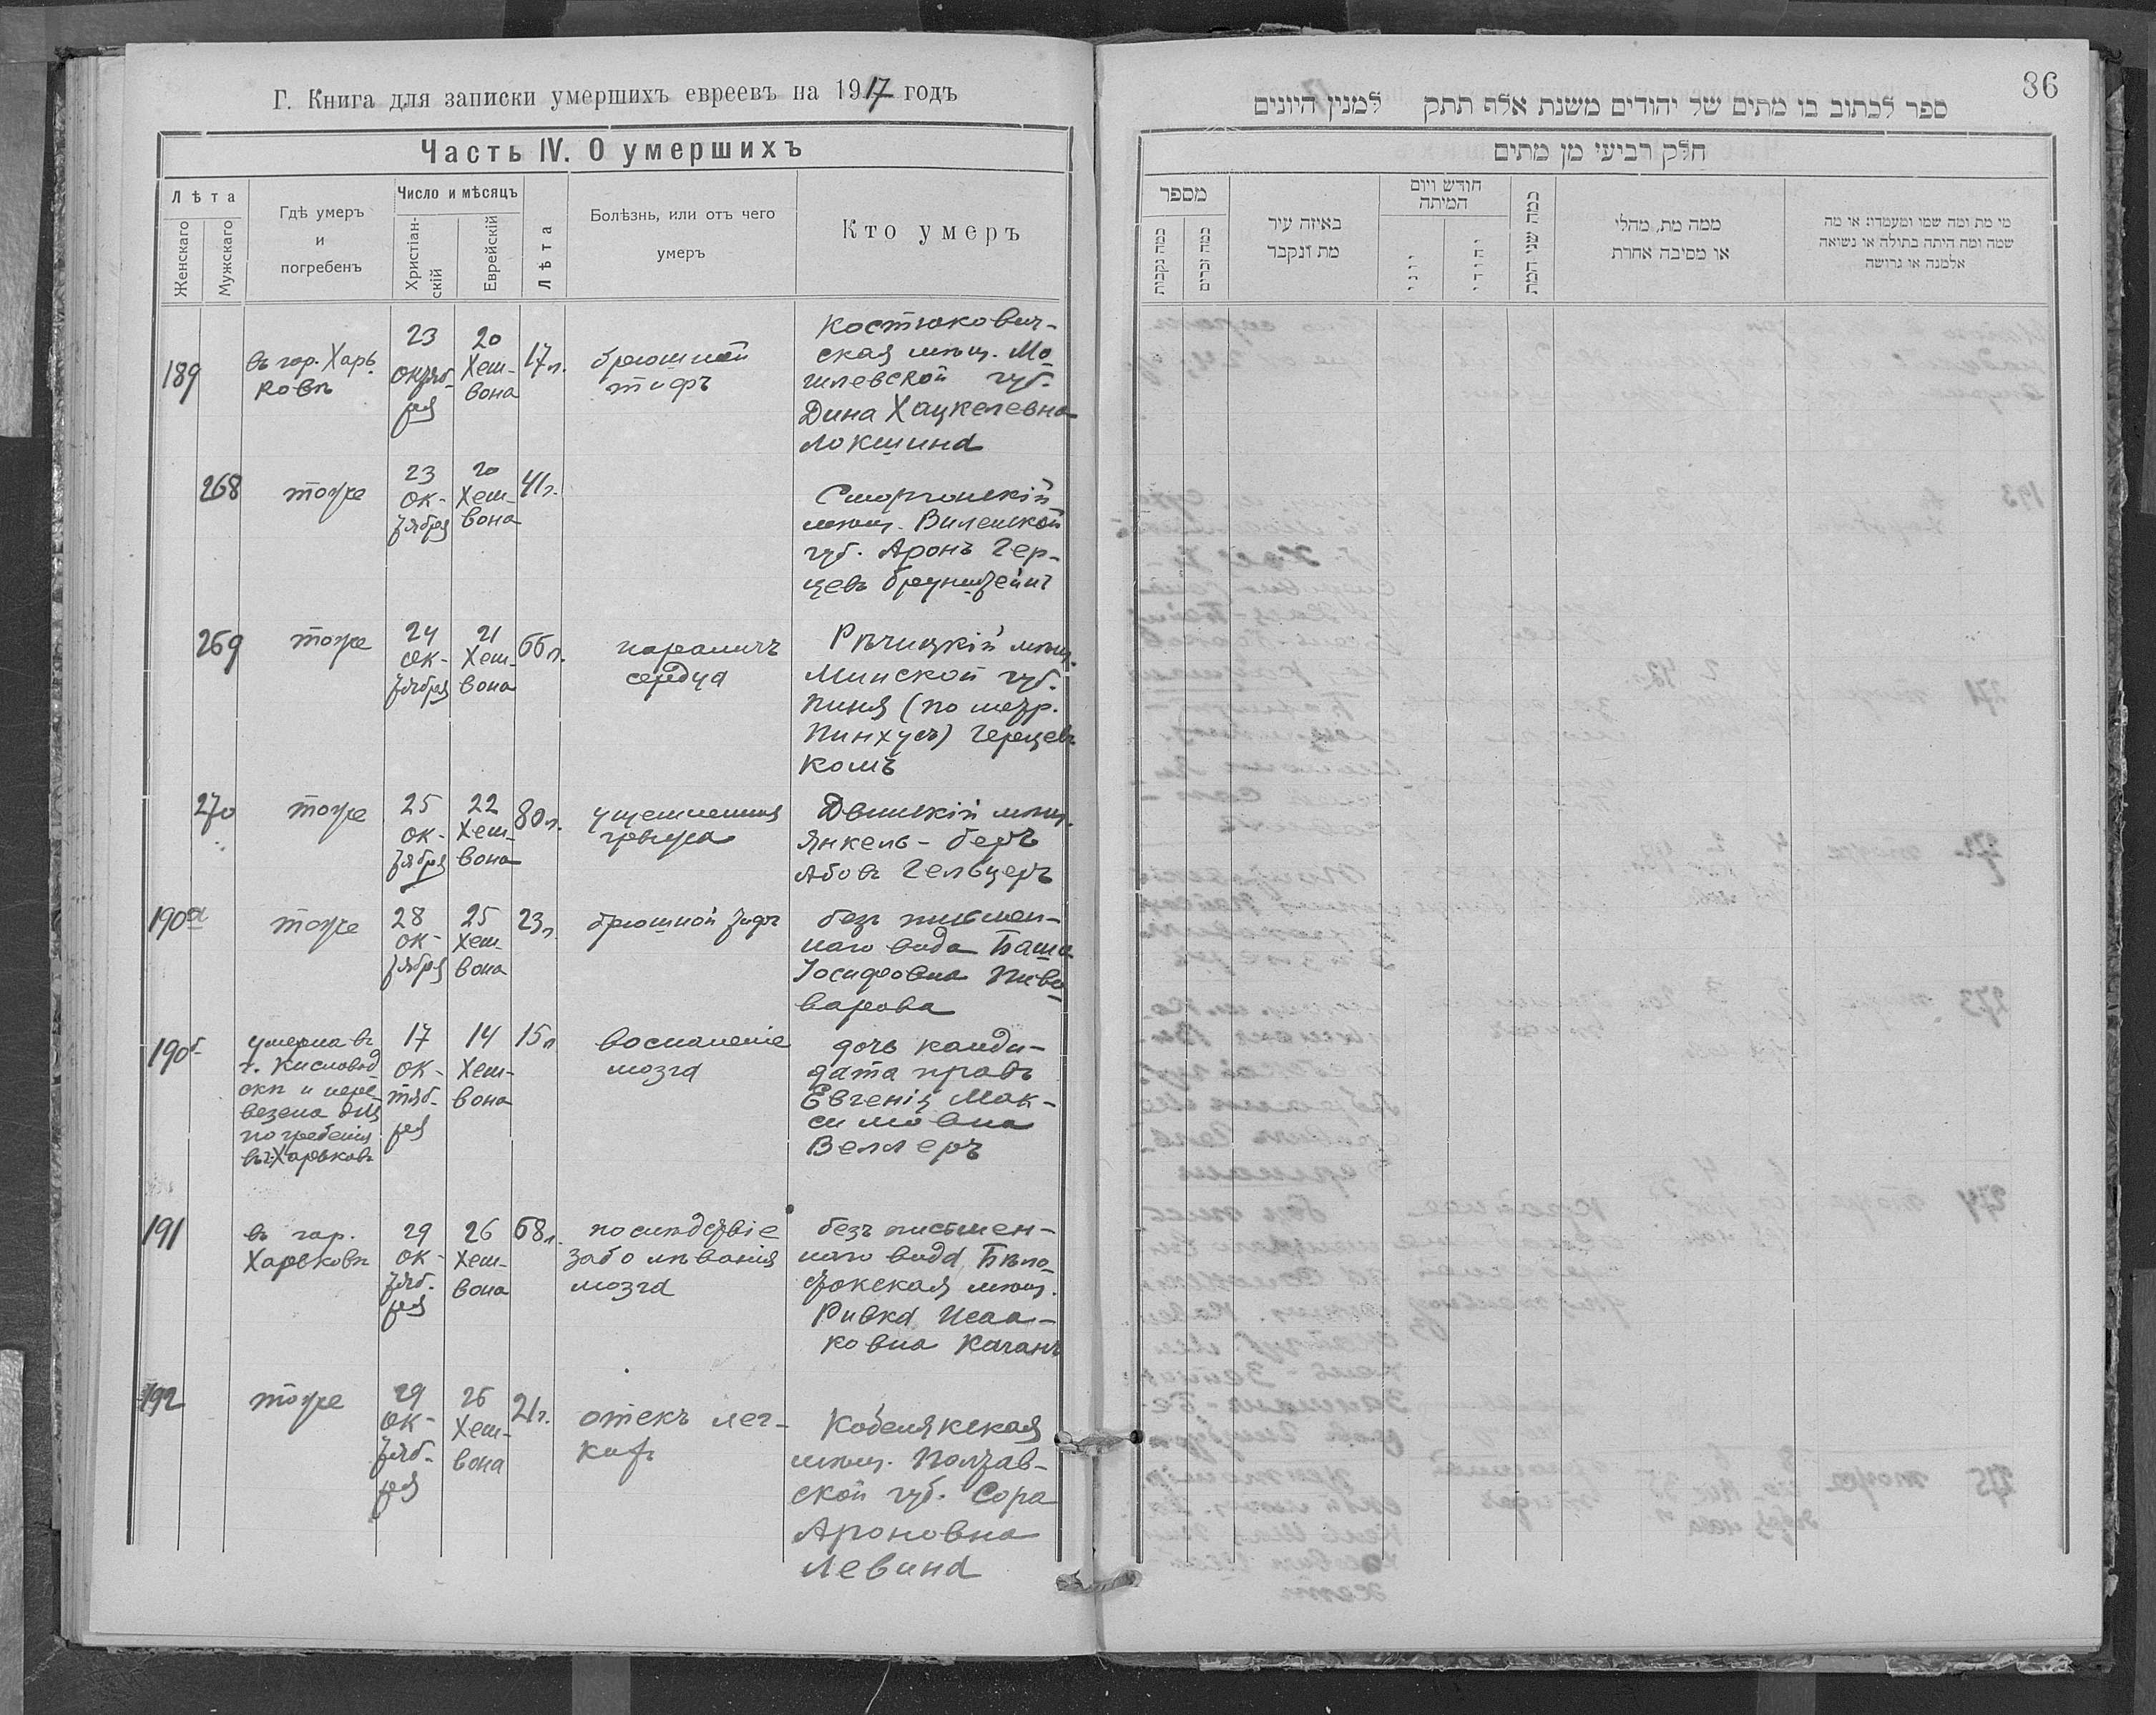 Г. Книга для записки умершихъ евреевъ на 1917 годъ
Часть IV. О умершихъ
Лѣта
Женскаго
Мужскаго
Гдѣ умеръ
и
погребенъ
Число и мѣсяцъ
Христіан-
скій
Еврейскій
Лѣта
Болѣзнь, или отъ чего
умеръ
Кто умеръ
189
въ гор. Харь
ковѣ
23
октяб-
ря
20
Хеш-
вона
17 л.
брюшной
тифъ
Костюкович-
ская мѣщ. Мо
гилевской губ.
Дина Хацкелевна
Локшина
268
тоже
23
ок-
тября
20
Хеш-
вона
41 г.
Сморгонскій
мѣщ. Виленской
губ. Аронъ Гер-
цевъ Браунштейнъ
269
тоже
24
ок-
тября
21
Хеш-
вона
66 л.
параличъ
сердца
Рѣчицкій мѣщ.
Минской губ.
Пиня (по метр.
Пинхусъ) Герцевъ
Комъ
270
тоже
25
ок-
тября
22
Хеш-
вона
80 л.
ущемленная
грыжа
Двинскій мѣщ.
Янкель-Беръ
Абовъ Гельцеръ
190а
тоже
28
ок-
тября
25
Хеш-
вона
23 г.
брюшной тифъ
безъ письмен-
наго вида Баша
Іосифовна Пиво-
варова
190б
умерла въ
г. Кисловод
скѣ и пере-
везена для
погребенія
въ г. Харьковъ
17
ок-
тяб-
ря
14
Хеш-
вона
15 л
воспаленіе
мозга
дочь канди-
дата правъ
Евгенія Мак-
симовна
Веллеръ
191
въ гор.
Харьковѣ
29
ок-
тяб-
ря
26
Хеш-
вона
68 л.
послѣдствіе
заболѣванія
мозга
безъ письмен-
наго вида Бѣло-
стокская мѣщ.
Ривка Исаа-
ковна Каганъ
192
тоже
29
ок-
тяб-
ря
26
Хеш-
вона
21 г.
отекъ лег-
кихъ
Кобелякская
мѣщ. Полтав-
ской губ. Сора
Ароновна
Левина
86
ספר לכתוב בו מתים של יהודים משנת אלף תתק למנין היונים
חלק רביעי מן מתים
מספר
כמה נקבות
כמה זכרים
באיזה עיר
מת ונקבר
חודש ויום
המיתה
יוני
יהודי
כמה שני המת
ממה מת, מהלי
או מסיבה אחרת
מי מת ומה שמו ומעמדו או מה
שמה ומה היתה בתולה או נשואה
אלמנה או גרושה